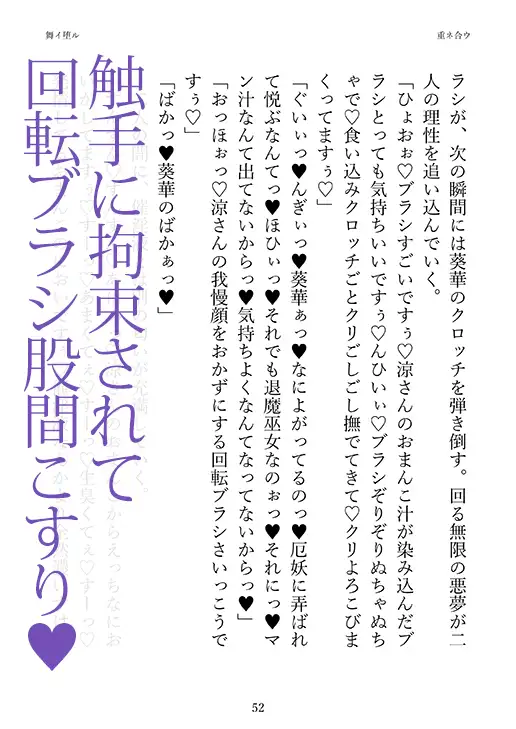 舞イ堕ル
重ネ合ウ
ラシが、次の瞬間には葵華のクロッチを弾き倒す。回る無限の悪夢が二
人の理性を追い込んでいく。
「ひょおぉ♡ブラシすごいですぅ♡涼さんのおまんこ汁が染み込んだブ
ラシとっても気持ちいいですぅ♡んひいぃ♡ブラシぞりぞりぬちゃぬち
ゃで♡食い込みクロッチごとクリごしごし撫でてきて♡クリよろこびま
くってますぅ♡」
「ぐいぃっ♥んぎぃっ♥葵華ぁっ♥なによがってるのっ♥厄妖に弄ばれ
て悦ぶなんてっ♥ほひぃっ♥それでも退魔巫女なのぉっ♥それにっ♥マ
ン汁なんて出てないからっ♥気持ちよくなんてなってないからっ♥」
「おっほぉっ♡涼さんの我慢顔をおかずにする回転ブラシさいっこうで
すぅ♡」
「ばかっ♥葵華のばかぁっ♥」
触手に拘束されて
回転ブラシ股間こすり♥
52